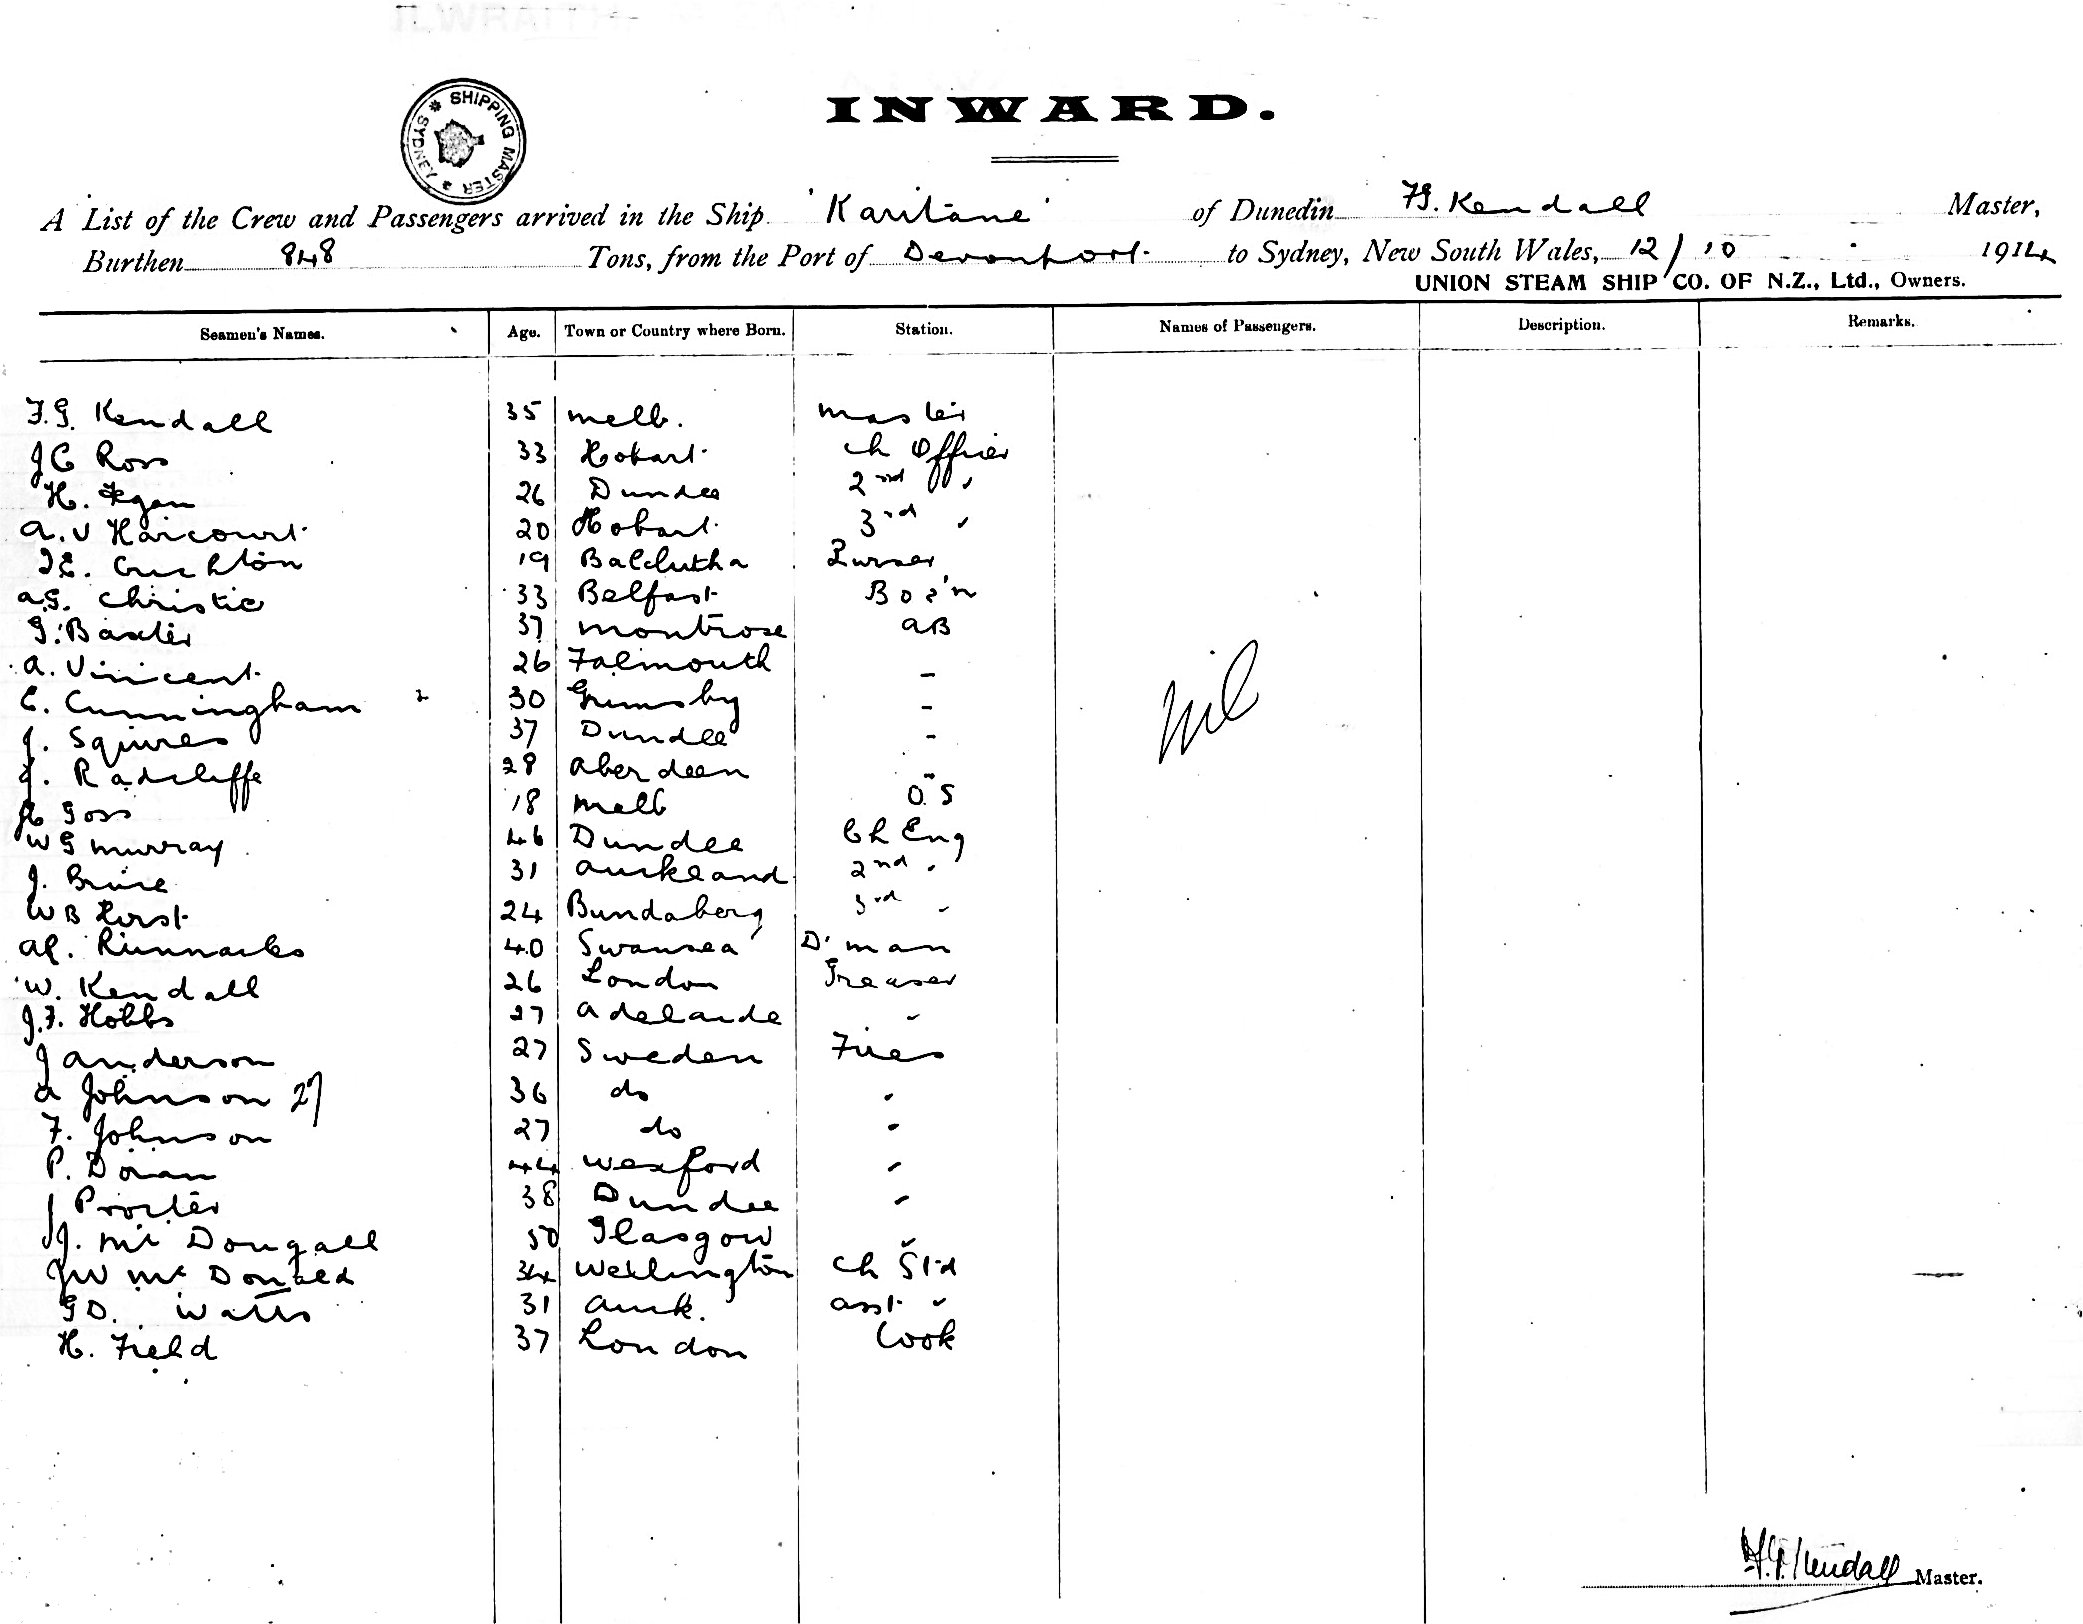 INWARD.
SHIPPING MASTER * SYDNEY *
A List of the Crew and Passengers arrived in the Ship 'Karitane' of Dunedin F.G. Kendall Master,
Burthen 848 Tons, from the Port of Devonport to Sydney, New South Wales, 12/10 1914
UNION STEAM SHIP CO. OF N.Z., Ltd., Owners.
Seamen's Names. Age. Town or Country where Born. Station. Names of Passengers. Description. Remarks.
F.G. Kendall 35 Melb. Master
J C Ross 33 Hobart Ch Officer
H. Egan 26 Dundee 2nd "
A.V Harcourt 20 Hobart 3rd "
Crichton 19 Balclutha Purser
A.G. Christie 33 Belfast Bos'n
G. Baxter 37 Montrose AB
A. Vincent 26 Falmouth -
C. Cunningham 30 Grimsby -
J. Squires 37 Dundee -
J. Radcliffe 28 Aberdeen "
Goss 18 Melb O.S
Nil
W G Murray 46 Dundee Ch Eng
J. Bruce 31 Auckland 2nd "
W B Hirst 24 Bundaberg 3rd "
40 Swansea D'man
W. Kendall 26 London Greaser
J.F. Hobbs 27 Adelaide "
J Anderson 27 Sweden Fires
A Johnson 27 36 do "
F. Johnson 27 do "
P. Doran 44 Wexford "
J Procter 38 Dundee "
J. Mc Dougall 50 Glasgow "
J W Mc Donald 34 Wellington Ch Std
G D. Watts 31 Auck. Asst "
H. Field 37 London Cook
F.G. Kendall Master.